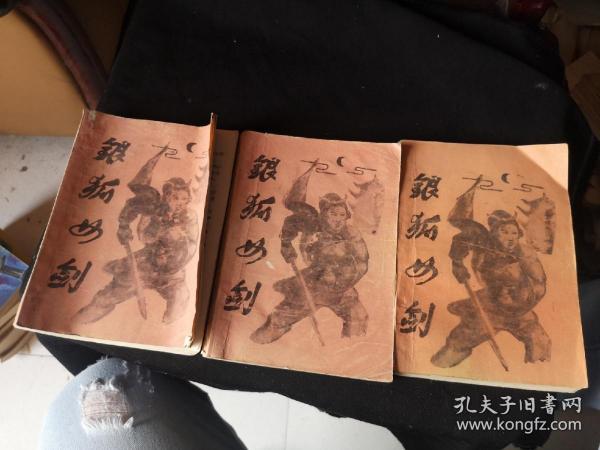 銀狐女剑
銀狐女剑
銀狐女剑
孔夫子旧書网
www.kongfz.com